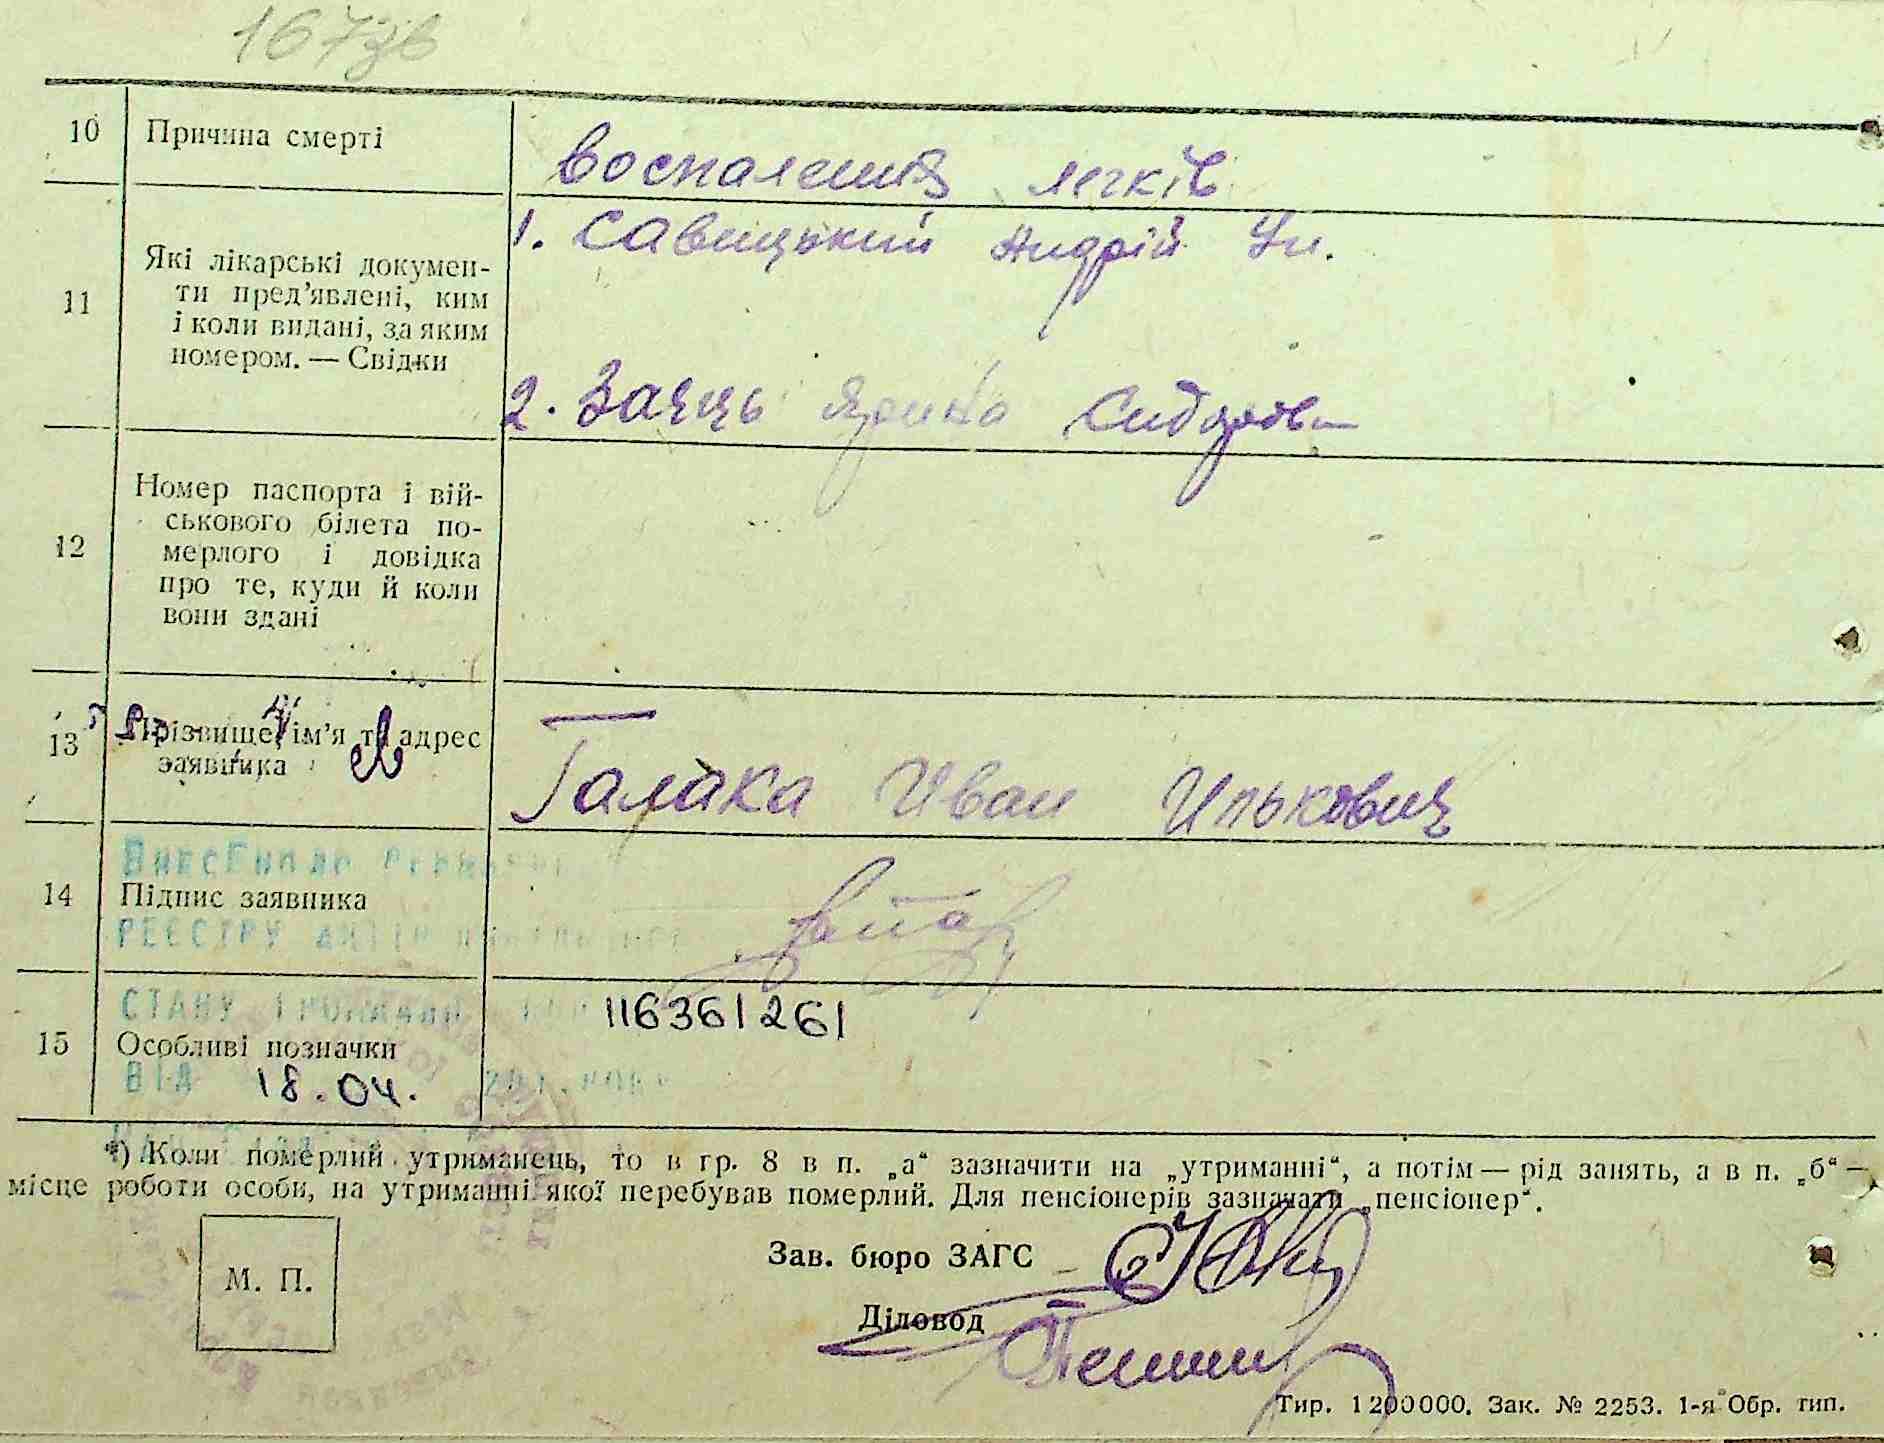 167зв
10 Причина смерті воспаления легків
11 Які лікарські докумен-
ти пред'явлені, ким
і коли видані, за яким
номером. — Свідки
1. Савицький Андрій Ул.
2. Заяць Ярина Сидоров
12 Номер паспорта і вій-
ськового білета по-
мерлого і довідка
про те, куди й коли
вони здані
13 Прізвище, ім'я та адрес
заявника
Галака Иван Илькович
Внесено до Державн
14 Підпис заявника
РЕЄСТРУ АКТІВ
СТАНУ ГРОМАДЯН 116361261
15 Особливі позначки
ВІД 18.04.
*) Коли померлий утриманець, то в гр. 8 в п. „а“ зазначити на „утриманні“, а потім — рід занять, а в п. „б“ —
місце роботи особи, на утриманні якої перебував померлий. Для пенсіонерів зазначати „пенсіонер“.
М. П.
Зав. бюро ЗАГС
Діловод
Тир. 1200000. Зак. № 2253. 1-я Обр. тип.